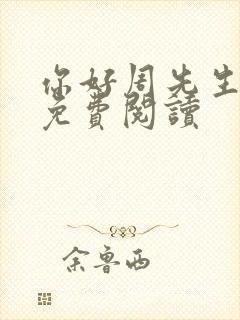 你好周先生
免費閱讀
余魯西